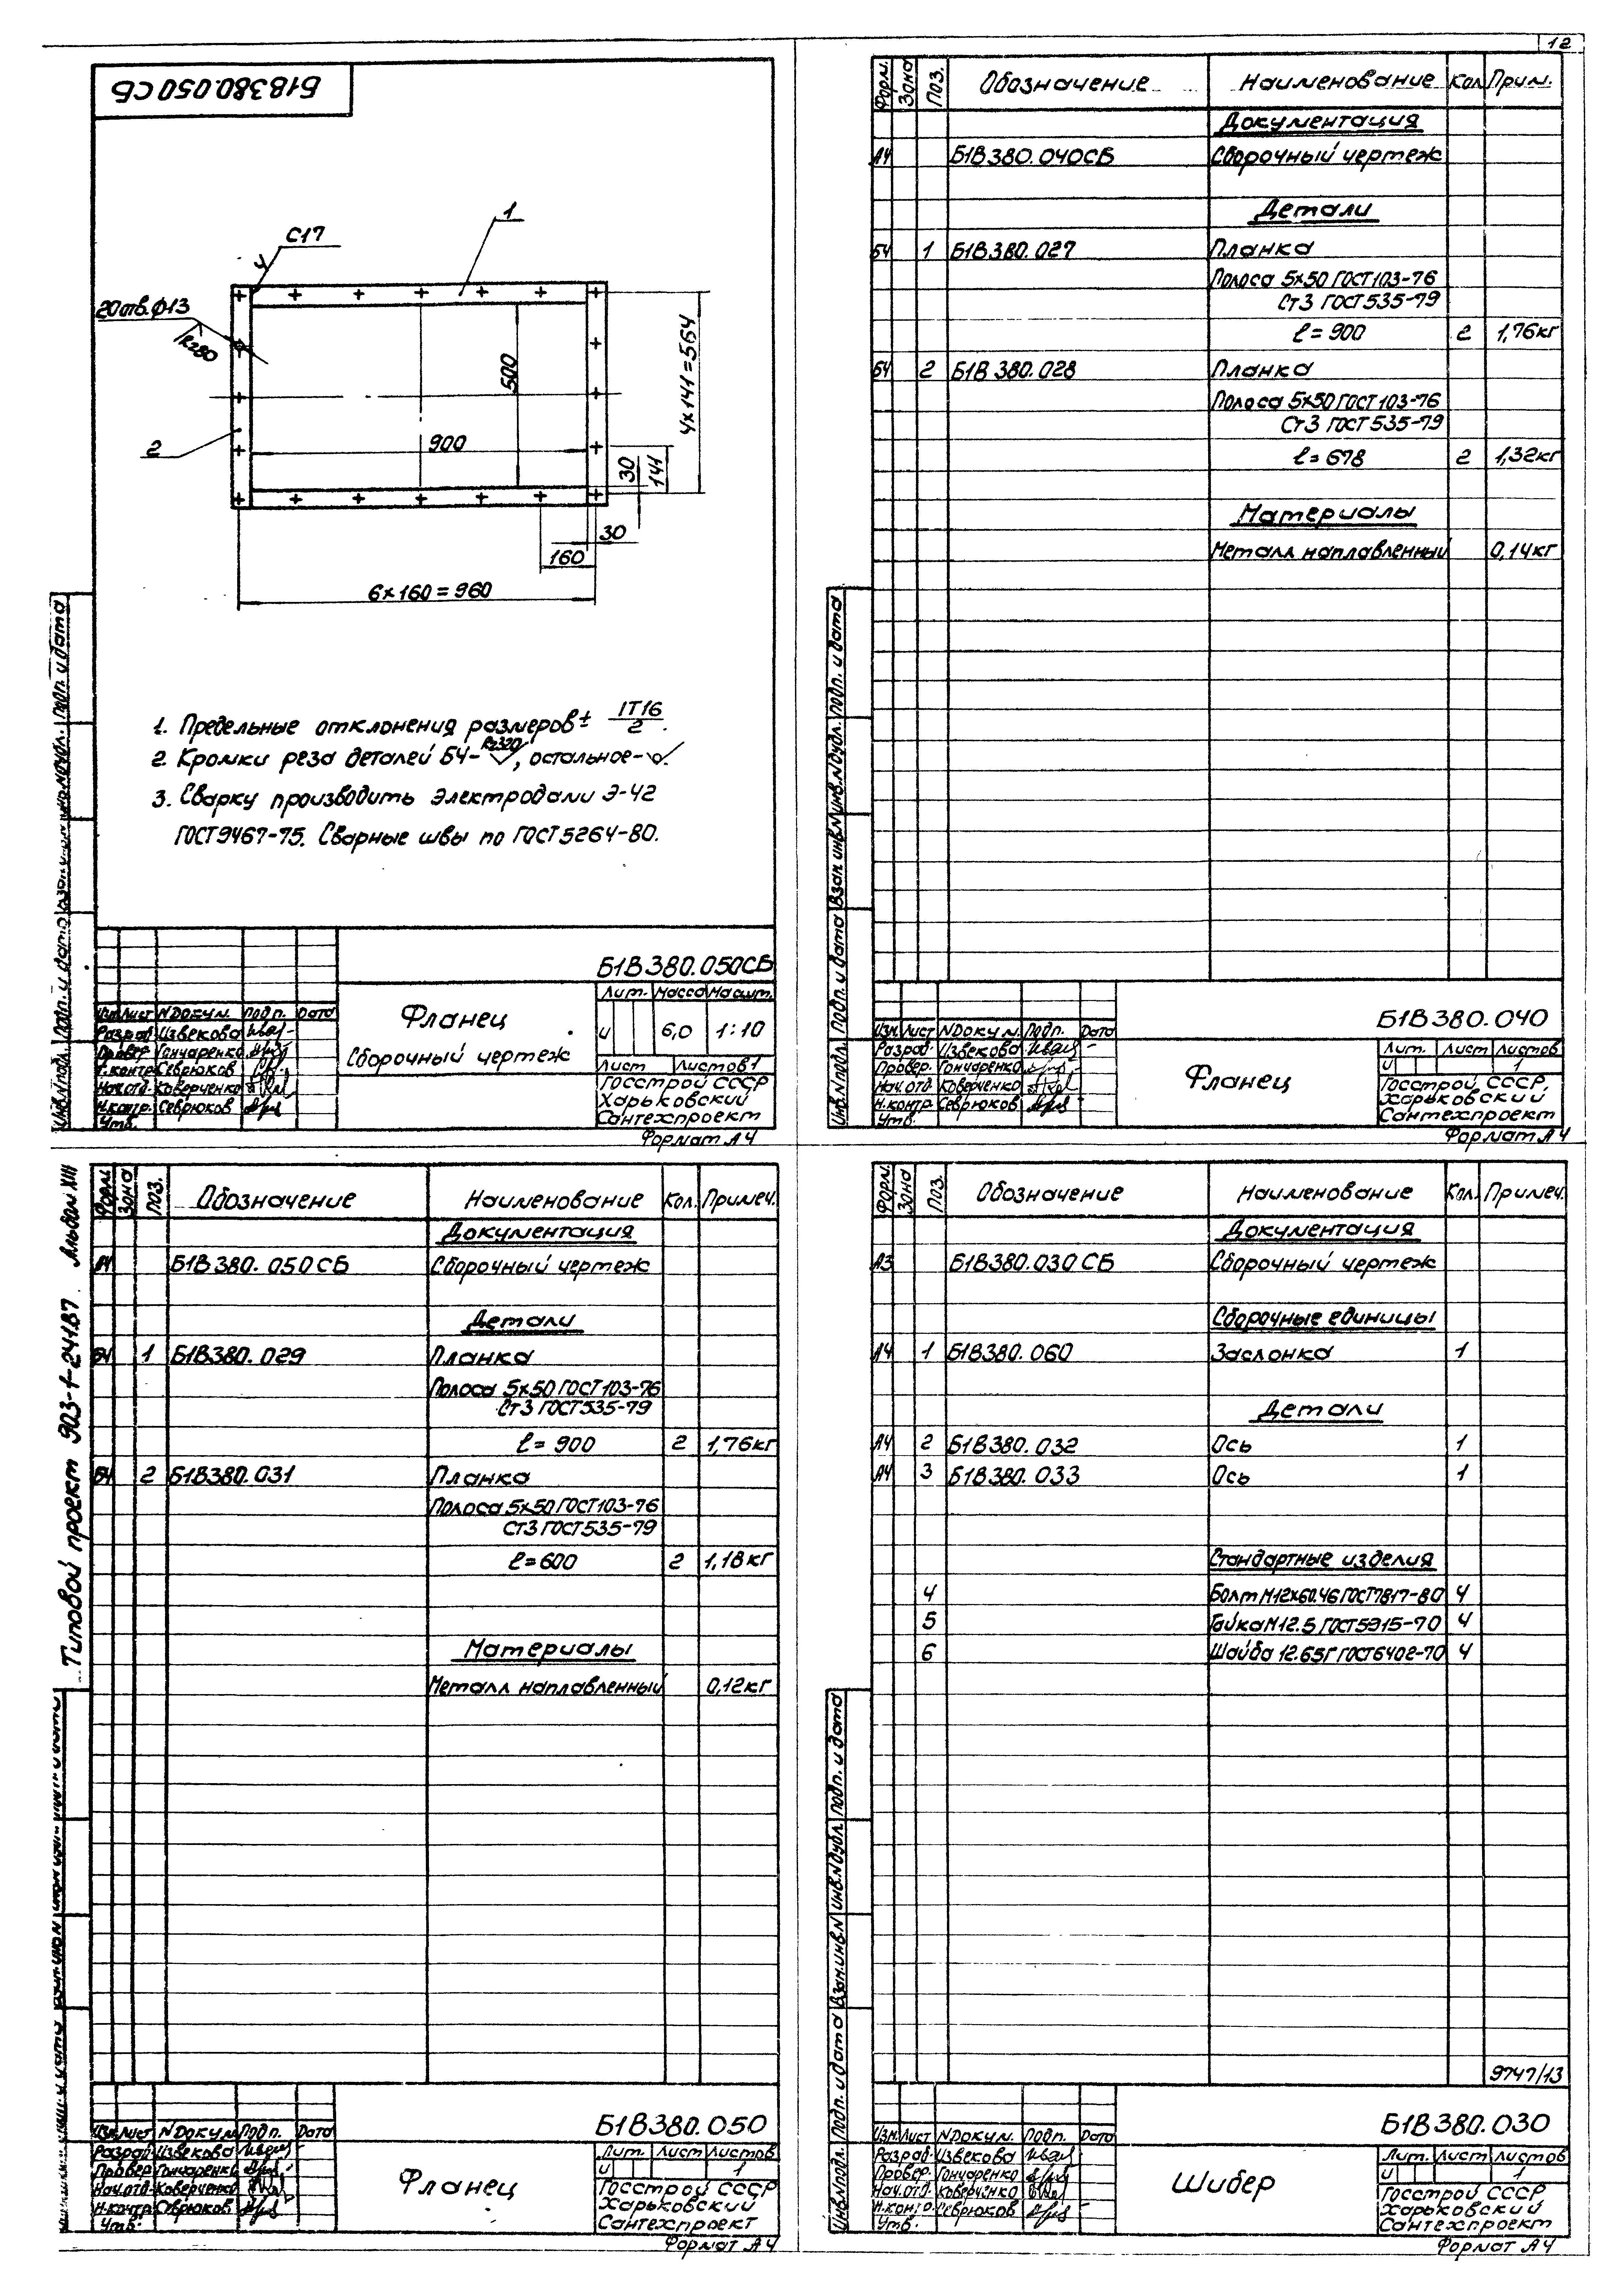 12
Б1В380.050СБ
1
С17
20отв.Ф13
Rz80
500
4×141=564
2
900
30
141
30
160
6×160=960
1. Предельные отклонения размеров ± IT16/2.
2. Кромки реза деталей БЧ- Rz320, остальное-
3. Сварку производить электродами Э-42
ГОСТ9467-75. Сварные швы по ГОСТ5264-80.
Б1В380.050СБ
Лит. Масса Масшт.
и 6,0 1:10
Лист Листов 1
Фланец
Сборочный чертеж
Изм. Лист N Докум. Подп. Дата
Разраб. Извекова
Провер. Гончаренко
Т.контр. Севрюков
Нач.отд. Коверченко
Н.контр. Севрюков
Утв.
Госстрой СССР
Харьковский
Сантехпроект
Формат А4
Инв.N подл. Подп. и дата
Подп. и дата
Форм. Зона Поз. Обозначение Наименование Кол Прим.
Документация
А4 Б1В380.040СБ Сборочный чертеж
Детали
БЧ 1 Б1В380.027 Планка
Полоса 5×50 ГОСТ103-76
Ст3 ГОСТ535-79
ℓ=900 2 1,76кг
БЧ 2 Б1В380.028 Планка
Полоса 5×50 ГОСТ103-76
Ст3 ГОСТ535-79
ℓ=678 2 1,32кг
Материалы
Металл наплавленный 0,14кг
Инв.N подл. Подп. и дата Взам.инв.N Инв.N дубл. Подп. и дата
Б1В380.040
Изм. Лист N Докум. Подп. Дата
Разраб. Извекова
Провер. Гончаренко
Нач.отд. Коверченко
Н.контр. Севрюков
Утв.
Фланец
Лит. Лист Листов
и 1
Госстрой СССР,
Харьковский
Сантехпроект
Формат А4
Типовой проект 903-1-241.87 Альбом XIII
Форм. Зона Поз. Обозначение Наименование Кол. Примеч.
Документация
А4 Б1В380.050СБ Сборочный чертеж
Детали
БЧ 1 Б1В380.029 Планка
Полоса 5×50 ГОСТ103-76
Ст3 ГОСТ535-79
ℓ=900 2 1,76кг
БЧ 2 Б1В380.031 Планка
Полоса 5×50 ГОСТ103-76
Ст3 ГОСТ535-79
ℓ=600 2 1,18кг
Материалы
Металл наплавленный 0,12кг
Б1В380.050
Изм. Лист N Докум. Подп. Дата
Разраб. Извекова
Провер. Гончаренко
Нач.отд. Коверченко
Н.контр. Севрюков
Утв.
Фланец
Лит. Лист Листов
и 1
Госстрой СССР
Харьковский
Сантехпроект
Формат А4
Форм. Зона Поз. Обозначение Наименование Кол. Примеч.
Документация
А3 Б1В380.030СБ Сборочный чертеж
Сборочные единицы
А4 1 Б1В380.060 Заслонка 1
Детали
А4 2 Б1В380.032 Ось 1
А4 3 Б1В380.033 Ось 1
Стандартные изделия
4 Болт М12×60.46 ГОСТ7817-80 4
5 Гайка М12.5 ГОСТ5915-70 4
6 Шайба 12.65Г ГОСТ6402-70 4
9747/13
Инв.N подл. Подп. и дата Взам.инв.N Инв.N дубл. Подп. и дата
Б1В380.030
Изм. Лист N Докум. Подп. Дата
Разраб. Извекова
Провер. Гончаренко
Нач.отд. Коверченко
Н.контр. Севрюков
Утв.
Шибер
Лит. Лист Листов
и 1
Госстрой СССР
Харьковский
Сантехпроект
Формат А4